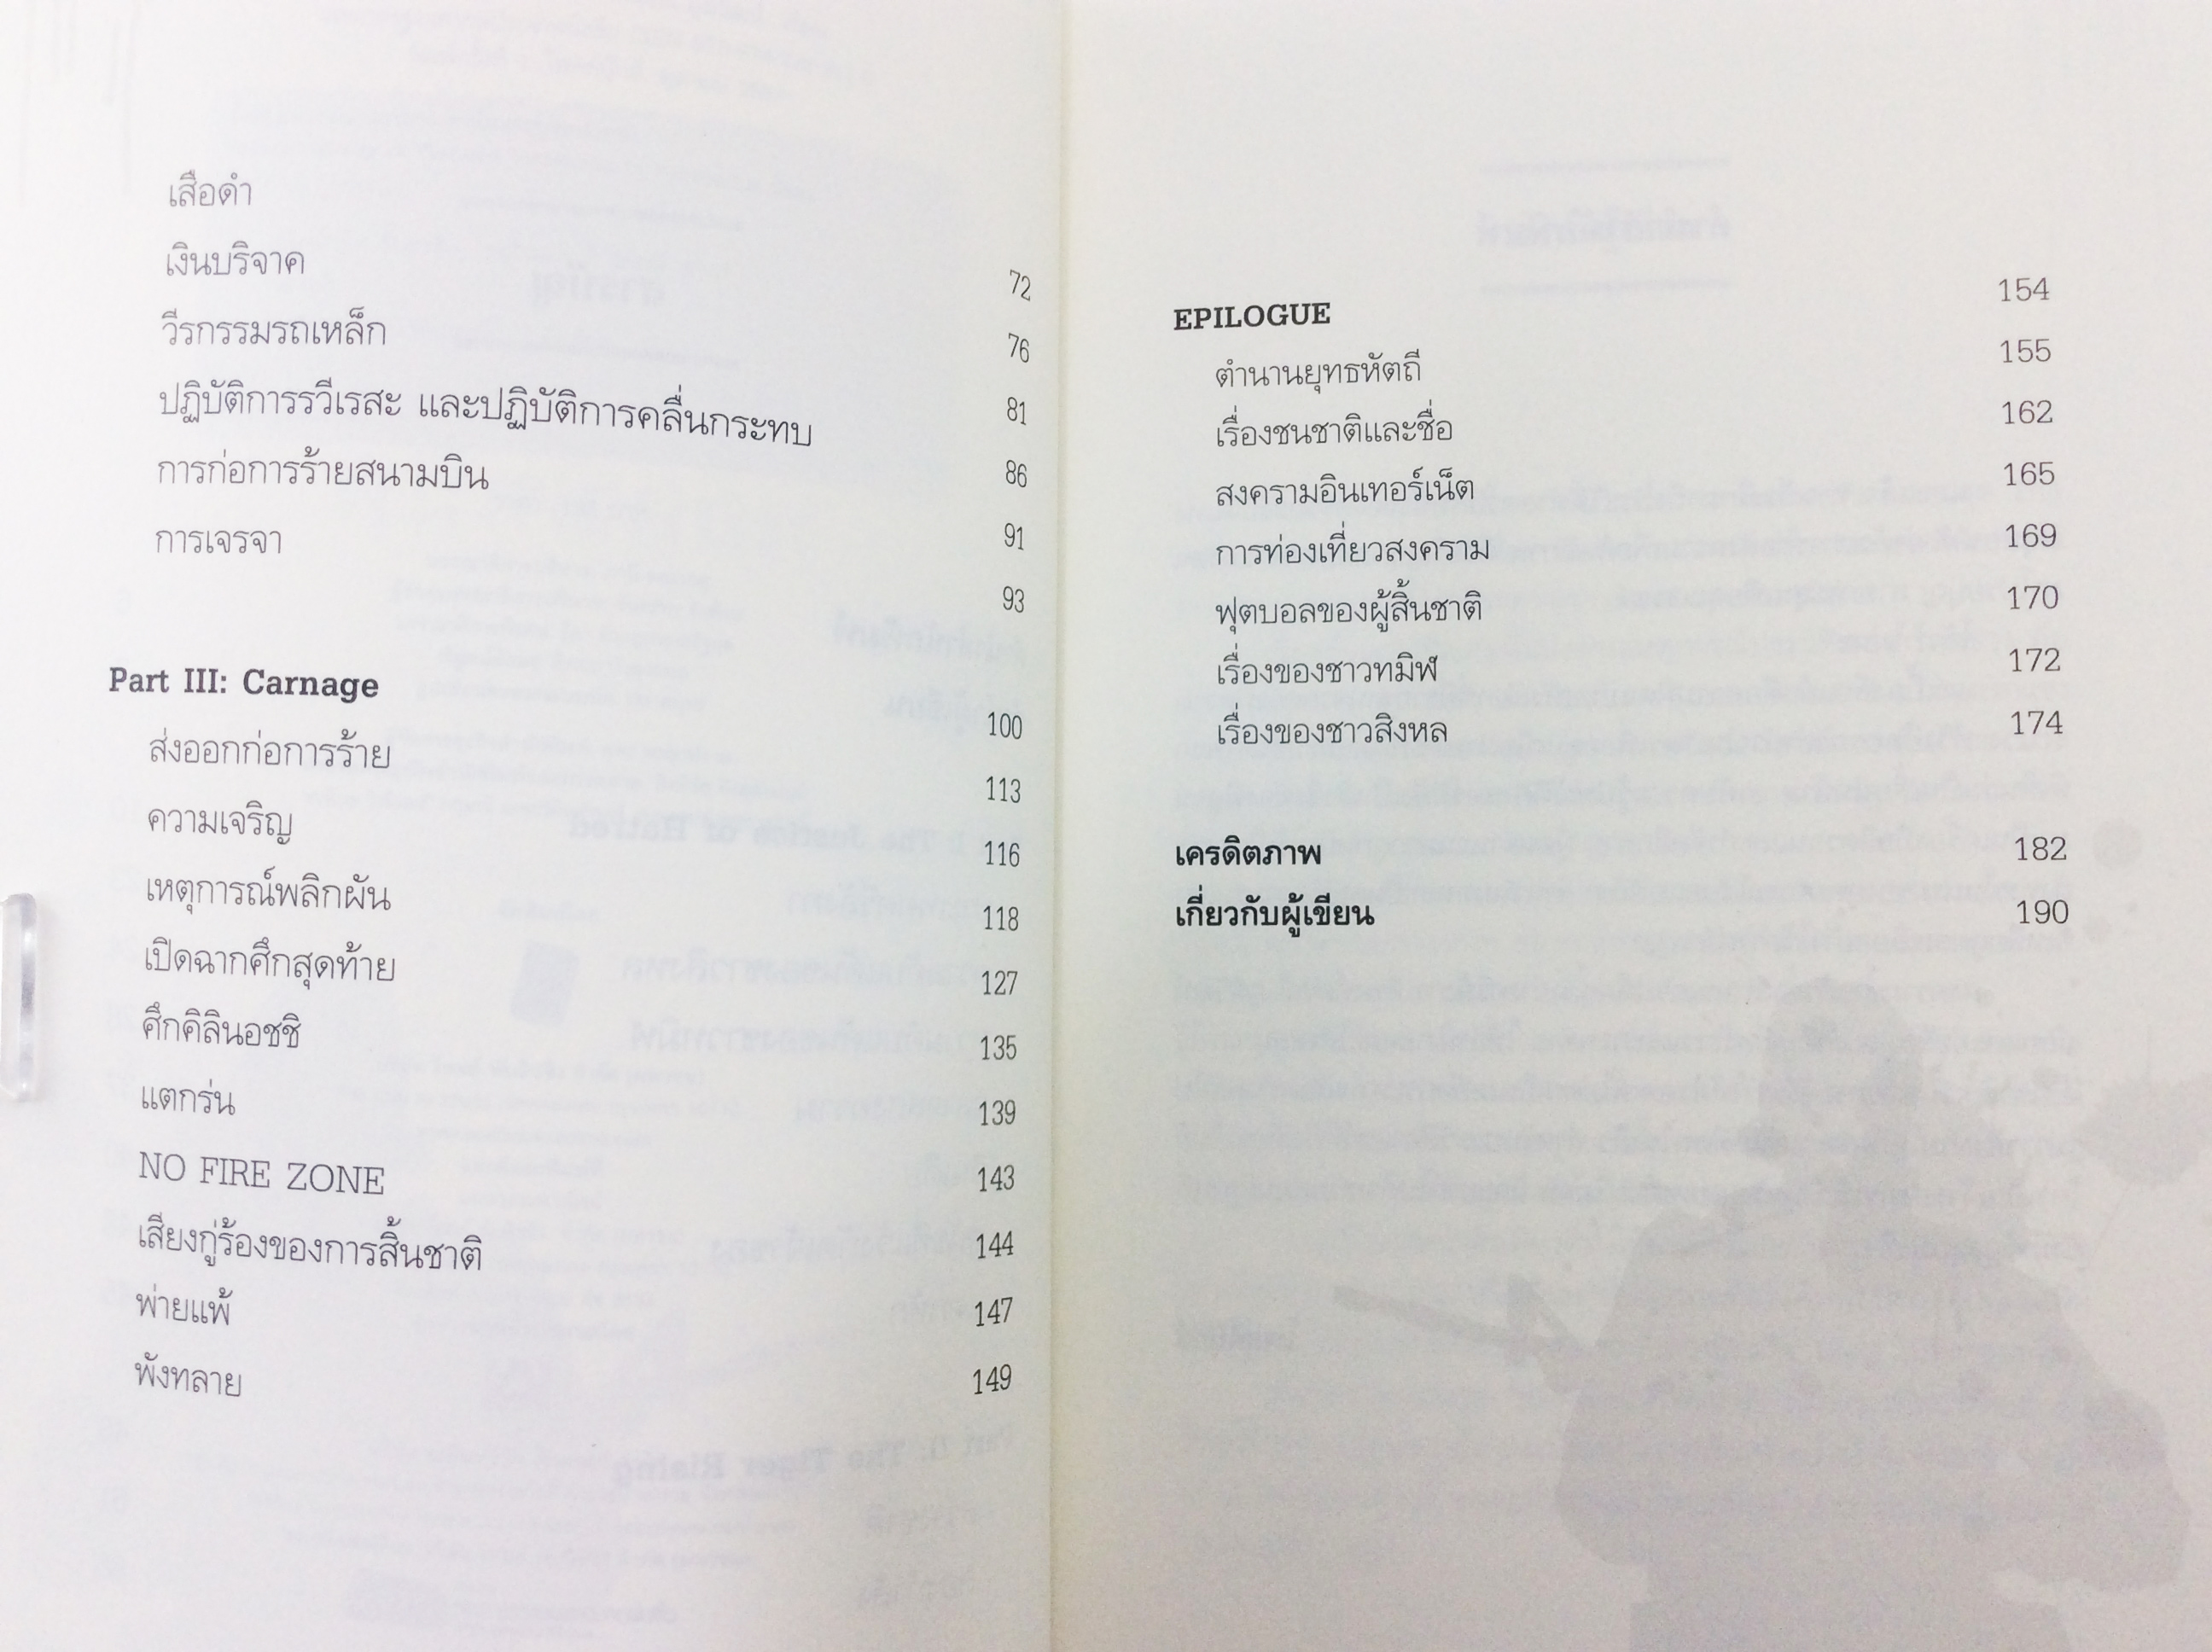 เสือดำ 72
เงินบริจาค 76
วีรกรรมรถเหล็ก 81
ปฏิบัติการรวีเรสะ และปฏิบัติการคลื่นกระทบ 86
การก่อการร้ายสนามบิน 91
การเจรจา 93
Part III: Carnage 100
ส่งออกก่อการร้าย 113
ความเจริญ 116
เหตุการณ์พลิกผัน 118
เปิดฉากศึกสุดท้าย 127
ศึกคิลินอชชิ 135
แตกร่น 139
NO FIRE ZONE 143
เสียงกู่ร้องของการสิ้นชาติ 144
พ่ายแพ้ 147
พังทลาย 149
EPILOGUE 154
ตำนานยุทธหัตถี 155
เรื่องชนชาติและชื่อ 162
สงครามอินเทอร์เน็ต 165
การท่องเที่ยวสงคราม 169
ฟุตบอลของผู้สิ้นชาติ 170
เรื่องของชาวทมิฬ 172
เรื่องของชาวสิงหล 174
เครดิตภาพ 182
เกี่ยวกับผู้เขียน 190